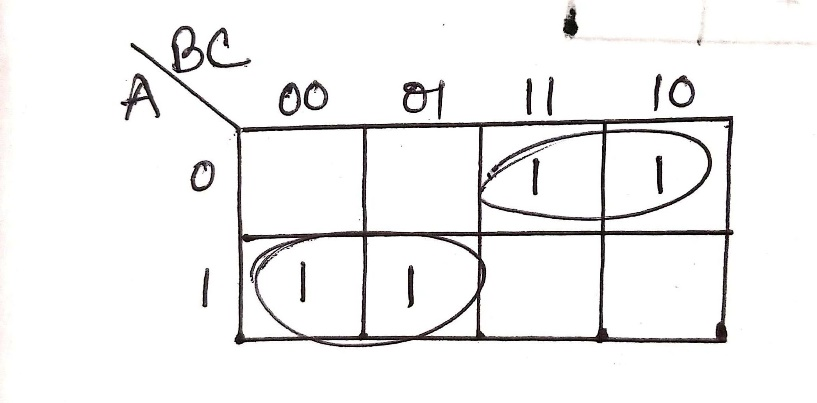 BC
A
00 01 11 10
0 1 1
1 1 1